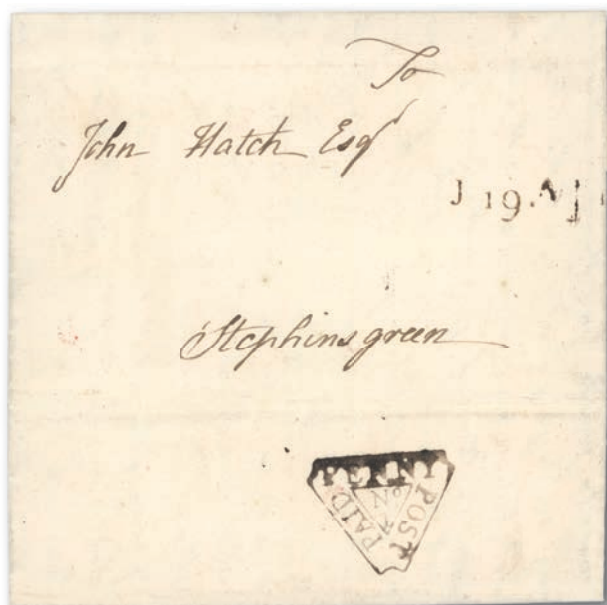 To
John Hatch Esqr
J 19.
Stephinsgreen
PENNY POST PAID
No